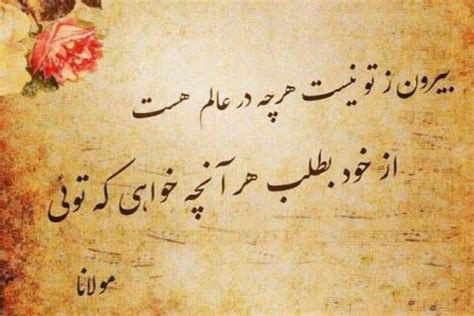 بیرون ز تو نیست هرچه در عالم هست
از خود بطلب هر آنچه خواهی که توئی
مولانا